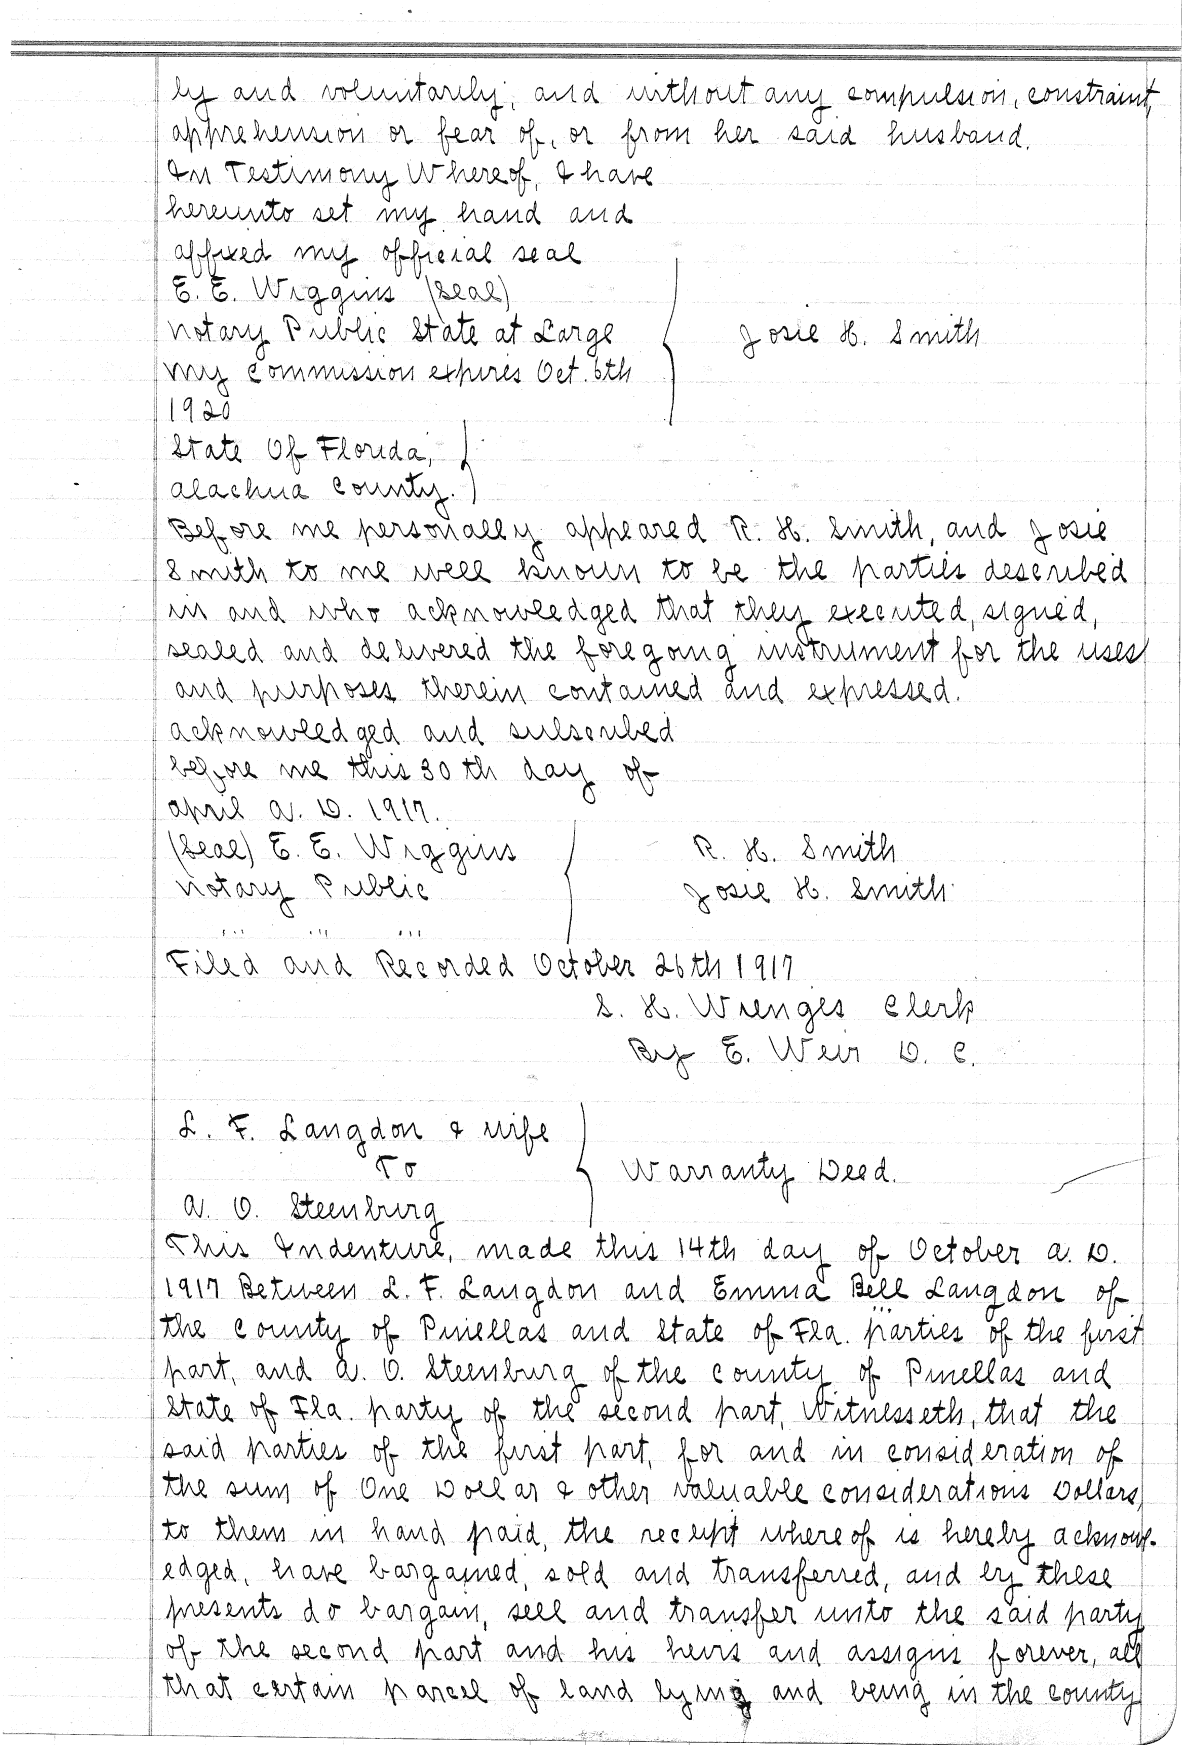 ly and voluntarily, and without any compulsion, constraint,
apprehension or fear of, or from her said husband.
In Testimony Whereof, I have
hereunto set my hand and
affixed my official seal
E. E. Wiggins (Seal)
Notary Public State at Large
My Commission expires Oct. 6th
1920
Josie H. Smith
State Of Florida,
Alachua County.
Before me personally appeared R. H. Smith, and Josie
Smith to me well known to be the parties described
in and who acknowledged that they executed, signed,
sealed and delivered the foregoing instrument for the uses
and purposes therein contained and expressed.
Acknowledged and subscribed
before me this 30th day of
April A. D. 1917.
(Seal) E. E. Wiggins
Notary Public
R. H. Smith
Josie H. Smith
Filed and Recorded October 26th 1917
S. H. Wienges Clerk
By E. Weir D. C.
L. F. Langdon & wife
To
A. O. Steenburg
Warranty Deed.
This Indenture, made this 14th day of October A. D.
1917 Between L. F. Langdon and Emma Bell Langdon of
the County of Pinellas and State of Fla. parties of the first
part, and A. O. Steenburg of the County of Pinellas and
State of Fla. party of the second part, Witnesseth, that the
said parties of the first part, for and in consideration of
the sum of One Dollar & other valuable considerations Dollars,
to them in hand paid, the receipt whereof is hereby acknowl-
edged, have bargained, sold and transferred, and by these
presents do bargain, sell and transfer unto the said party
of the second part and his heirs and assigns forever, all
that certain parcel of land lying and being in the County